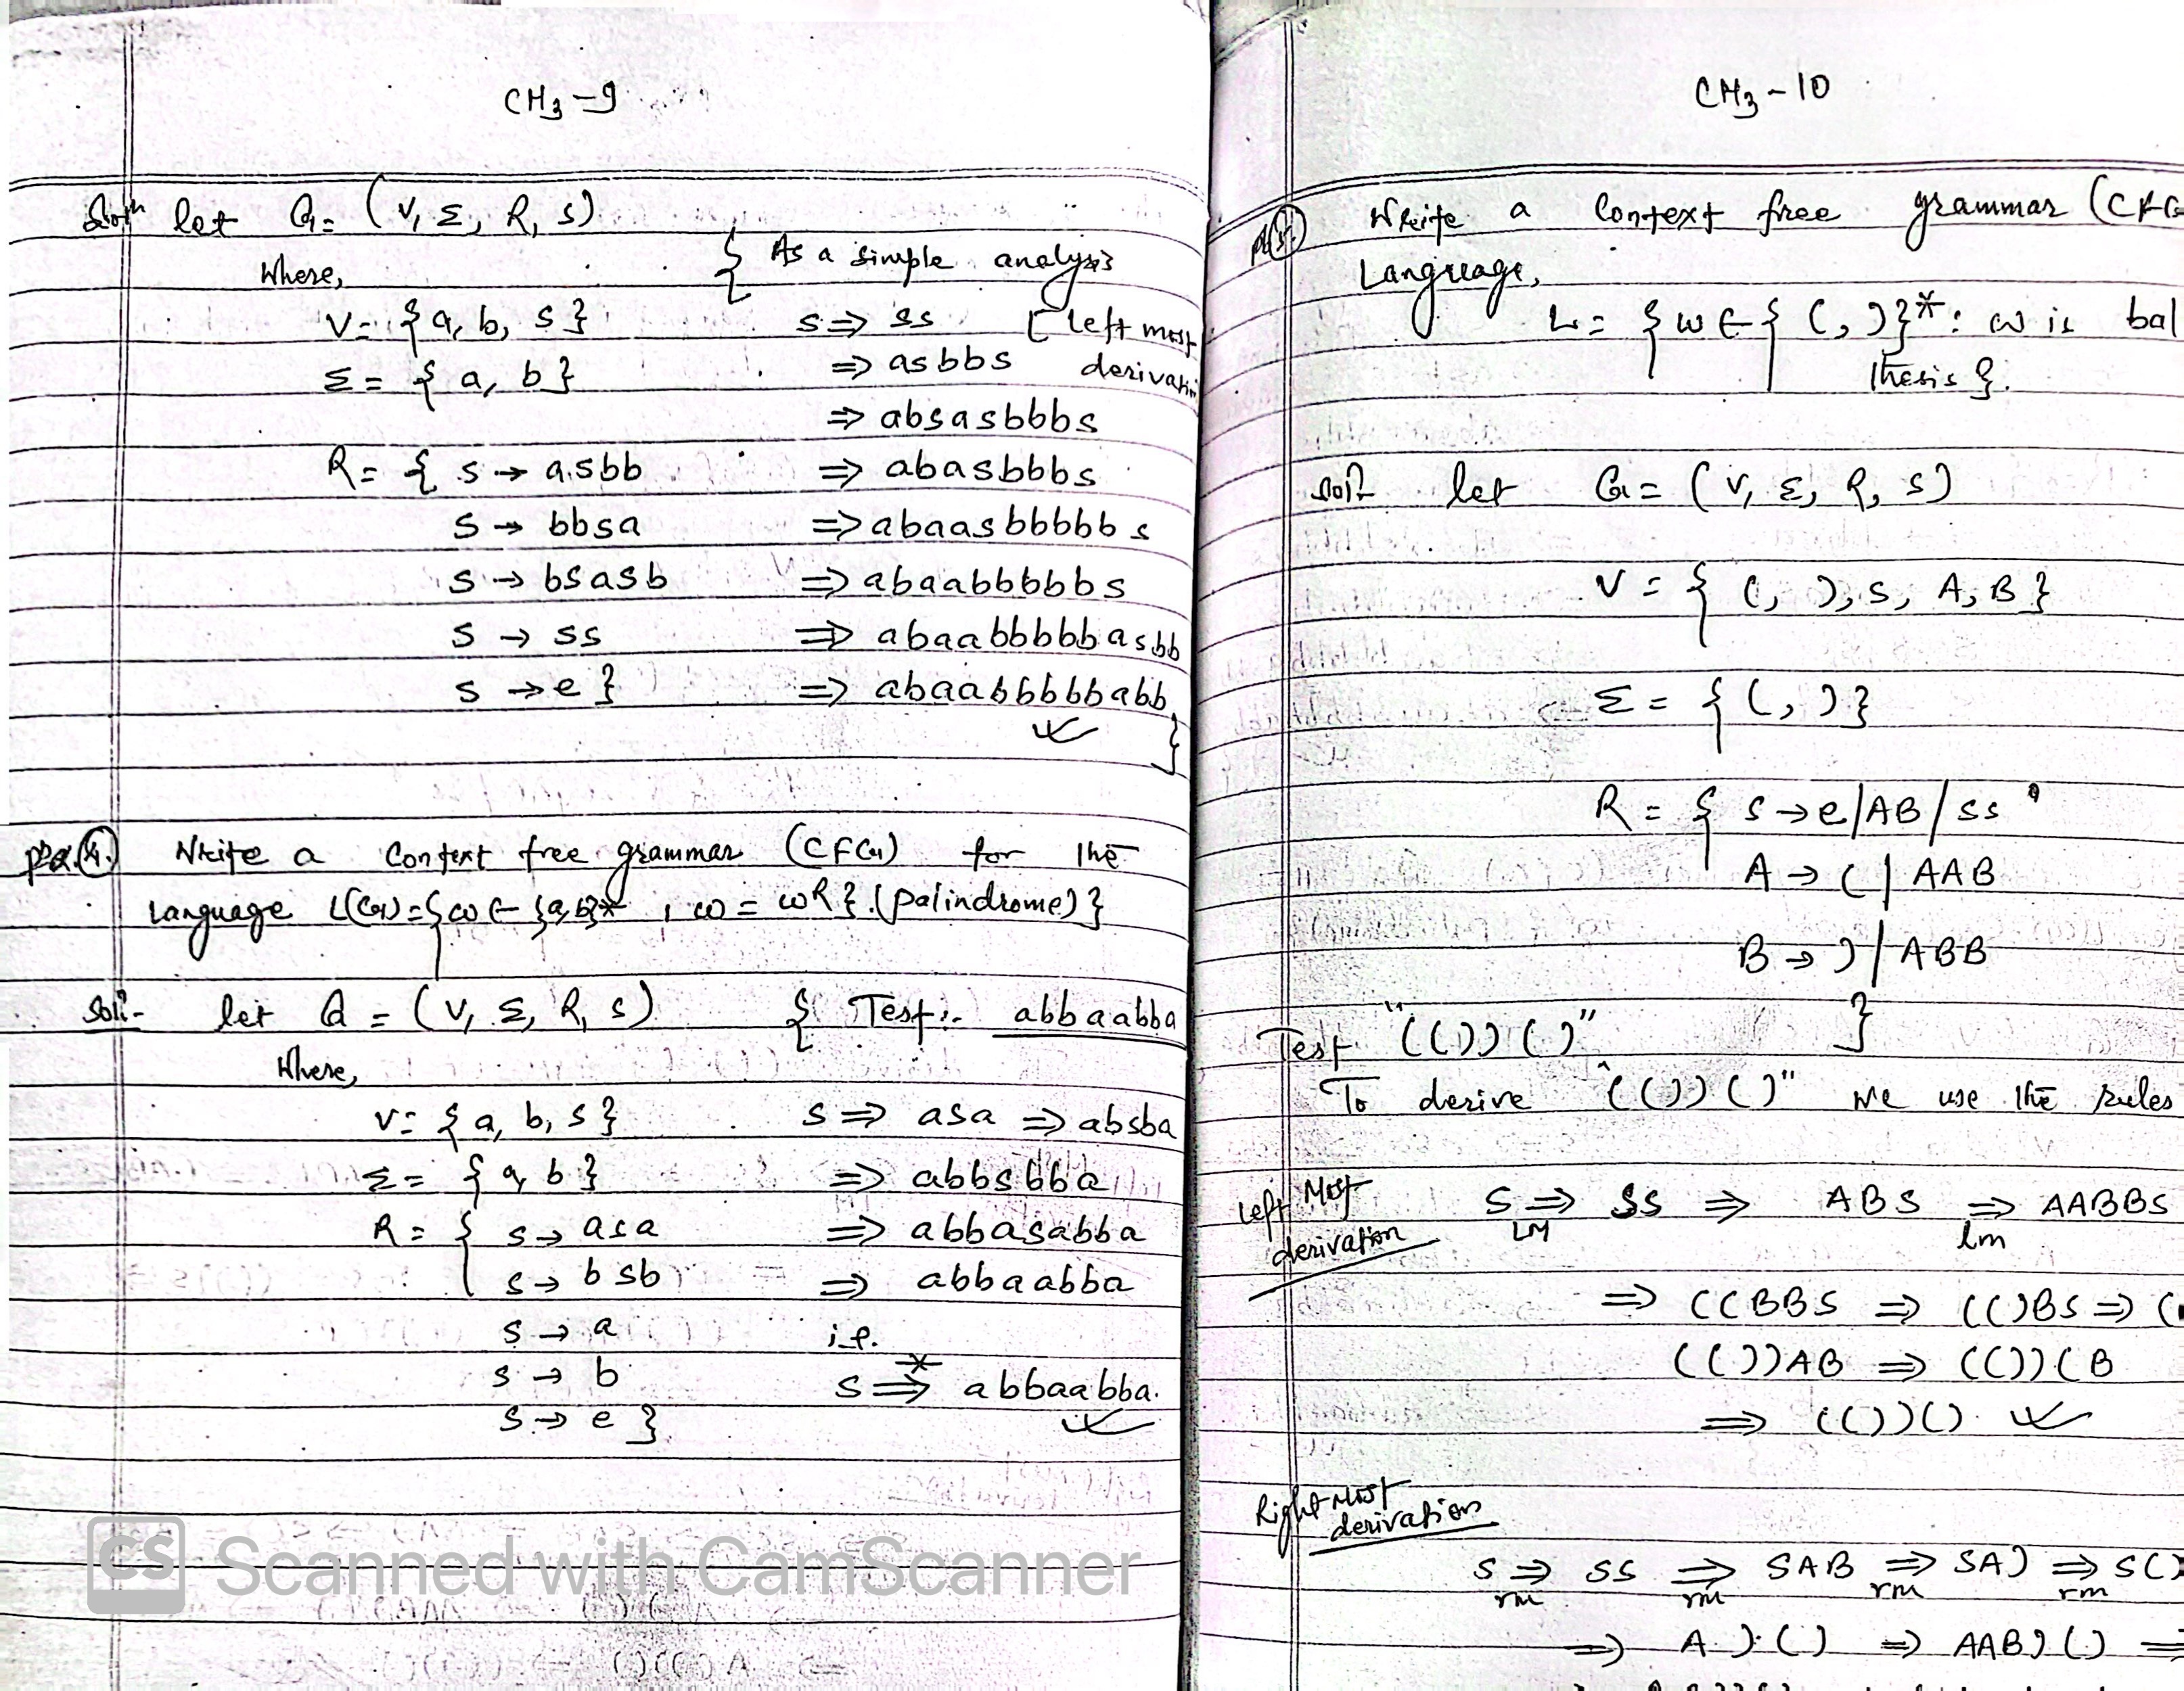 CH3-9
Soln let G = (V, Σ, R, S)
Where,
V = {a, b, S}
Σ = {a, b}
R = { S → aSbb
S → bbSa
S → bSaSb
S → SS
S → e }
{ As a simple analysis
S ⇒ SS [Left most
⇒ aSbbS derivation
⇒ abSaSbbbS
⇒ abaSbbbS
⇒ abaaSbbbbbS
⇒ abaabbbbbbS
⇒ abaabbbbbaSbb
⇒ abaabbbbbabb
}
4. Write a Context free grammar (CFG) for the
Language L(G) = {w ∈ {a,b}* , w = wR}.(palindrome)}
Soln:- let G = (V, Σ, R, S)
Where,
V = {a, b, S}
Σ = {a, b}
R = { S → aSa
S → bSb
S → a
S → b
S → e }
{ Test:- abbaabba
S ⇒ aSa ⇒ abSba
⇒ abbSbba
⇒ abbaSabba
⇒ abbaabba
i.e.
S ⇒* abbaabba.
CS Scanned with CamScanner
CH3-10
Write a Context free grammar (CFG
Language,
L = {w ∈ { (, ) }* : w is bal
thesis }.
Soln let G = (V, Σ, R, S)
V = { (, ), S, A, B }
Σ = { (, ) }
R = { S → e/AB/SS
A → ( | AAB
B → ) | ABB
}
Test "(())()"
To derive "(())()" we use the rules
Left Most derivation
S ⇒ SS ⇒ ABS ⇒ AABBS
LM lm
⇒ ((BBS ⇒ (()BS ⇒ (
(())AB ⇒ (())(B
⇒ (())()
Right Most derivation
S ⇒ SS ⇒ SAB ⇒ SA) ⇒ S()
rm rm rm rm
⇒ A)() ⇒ AAB)() ⇒